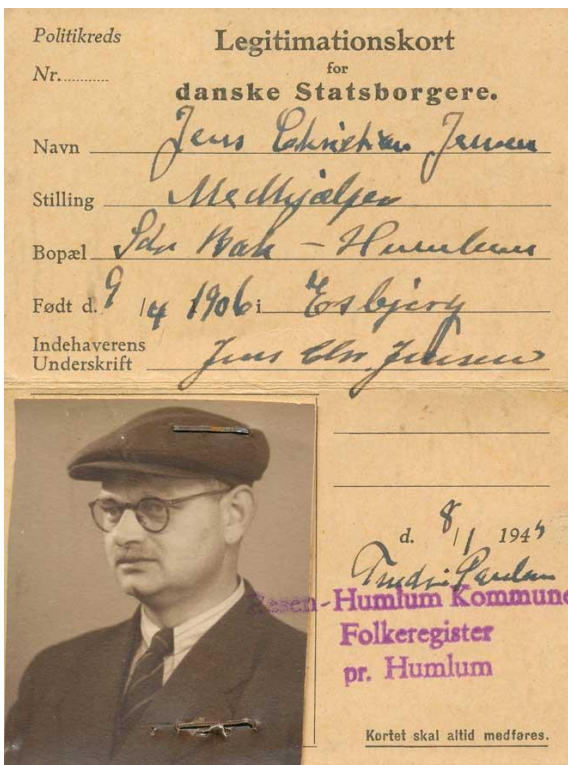 Politikreds
Nr...........
Legitimationskort
for
danske Statsborgere.
Navn Jens Christian Jensen
Stilling Medhjælper
Bopæl Sdr - Humlum
Født d. 9/4 1906 i Esbjerg
Indehaverens
Underskrift Jens Chr. Jensen
d. 8/1 194
Resen-Humlum Kommune
Folkeregister
pr. Humlum
Kortet skal altid medføres.